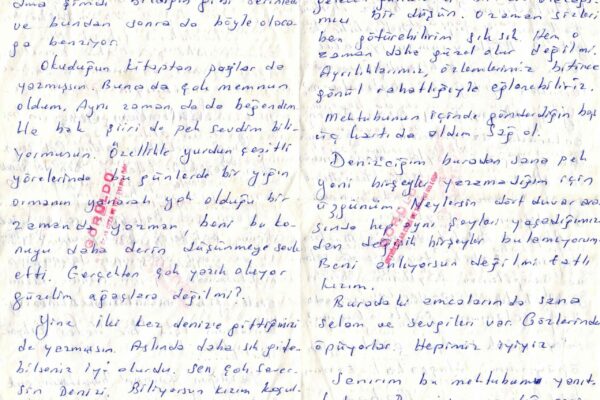 ve bundan sonra da böyle olaca
ğa benziyor.
Okuduğun kitaptan pasajlar da
yazmışsın. Buna da çok memnun
oldum. Aynı zamanda da beğendim.
Hele şiiri de pek sevdim bili-
yormusun. Özellikle yurdun çeşitli
yörelerinde bu günlerde bir yığın
ormanın yanarak yok olduğu bir
zamanda yazman, beni bu ko-
nuyu daha derin düşünmeye sevk
etti. Gerçekten çok yazık oluyor
güzelim ağaçlara değilmi?
Yine iki kez denize gittiğinizi
de yazmışsın. Aslında daha sık gide-
bilseniz iyi olurdu. Sen çok sever-
sin Denizi. Biliyorsun kızım
GÖRÜLDÜ
bir düğün. O zaman sizleri
ben götürebilirim sık sık. Hem o
zaman daha güzel olur değilmi.
Ayrılıklarımız, özlemlerimiz bitince
gönül rahatlığıyla eğlenebiliriz.
Mektubunun içinde gönderdiğin
üç kartı da aldım. Sağ ol.
Denizciğim buradan sana pek
yeni birşeyler yazamadığım için
üzgünüm. Neylersin dört duvar ara
sında hep aynı şeyleri yaşadığımız
dan değişik birşeyler bulamıyorum.
Beni anlıyorsun değilmi tatlı
kızım.
Buradaki amcaların da sana
selam ve sevgileri var. Gözlerinden
öpüyorlar. Hepimiz iyiyiz.
Sanırım bu mektubumu
GÖRÜLDÜ